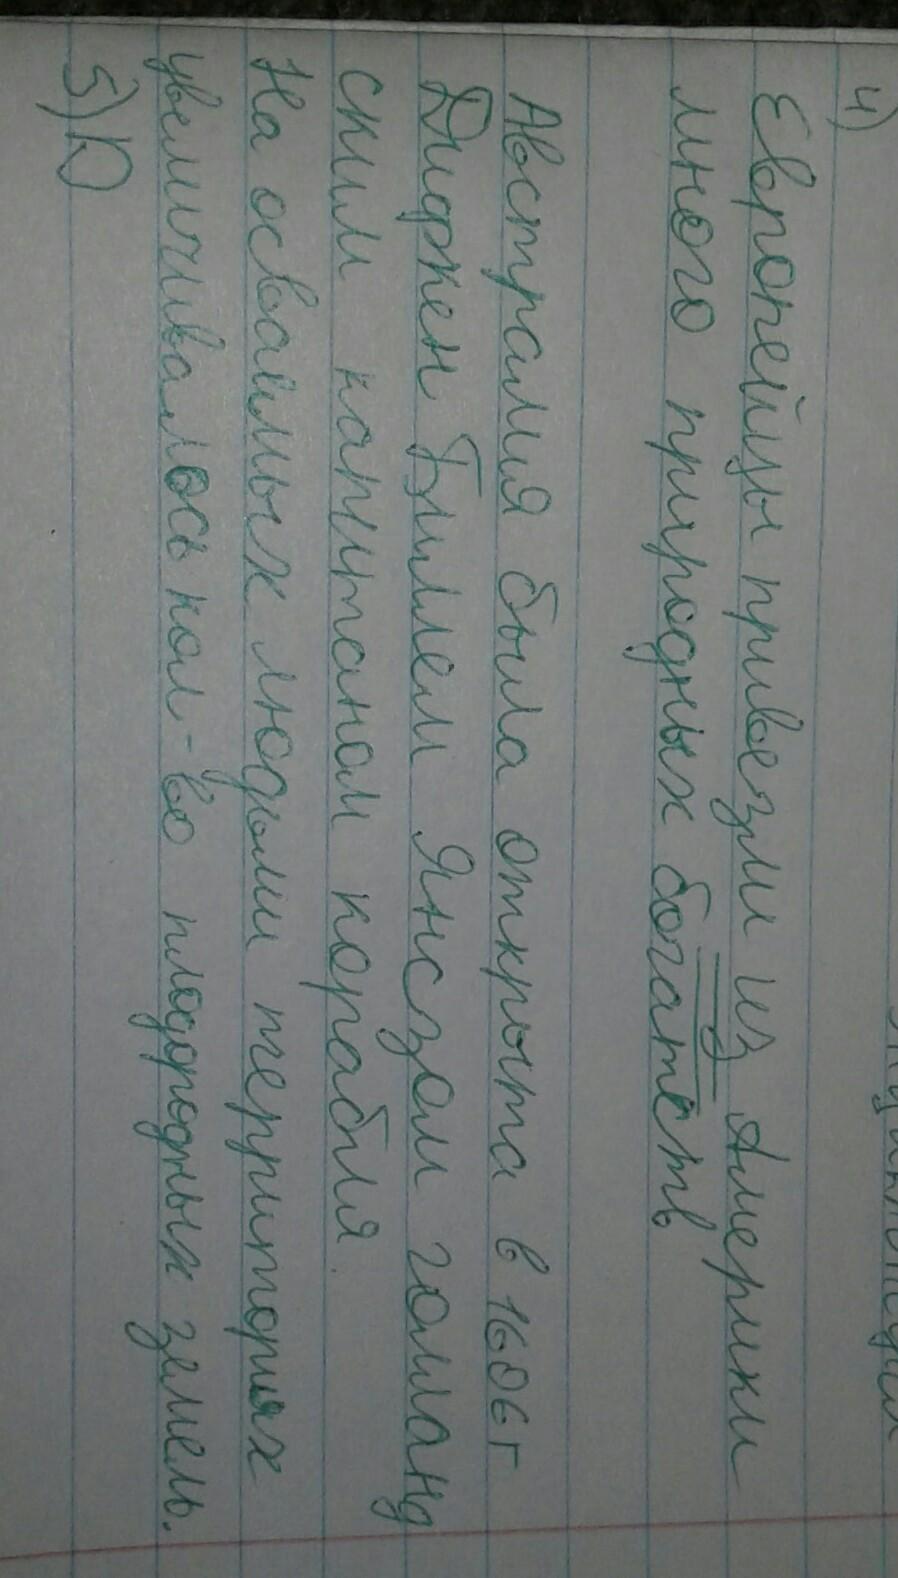 4)
Европейцы привезли из Америки
много природных богатств
Австралия была открыта в 1606 г
Дифкен Биллем Янсзом голланд
ским капитаном корабля.
На осваемых людьми территориях
увеличивалось кол-во плодородных земель.
5) D